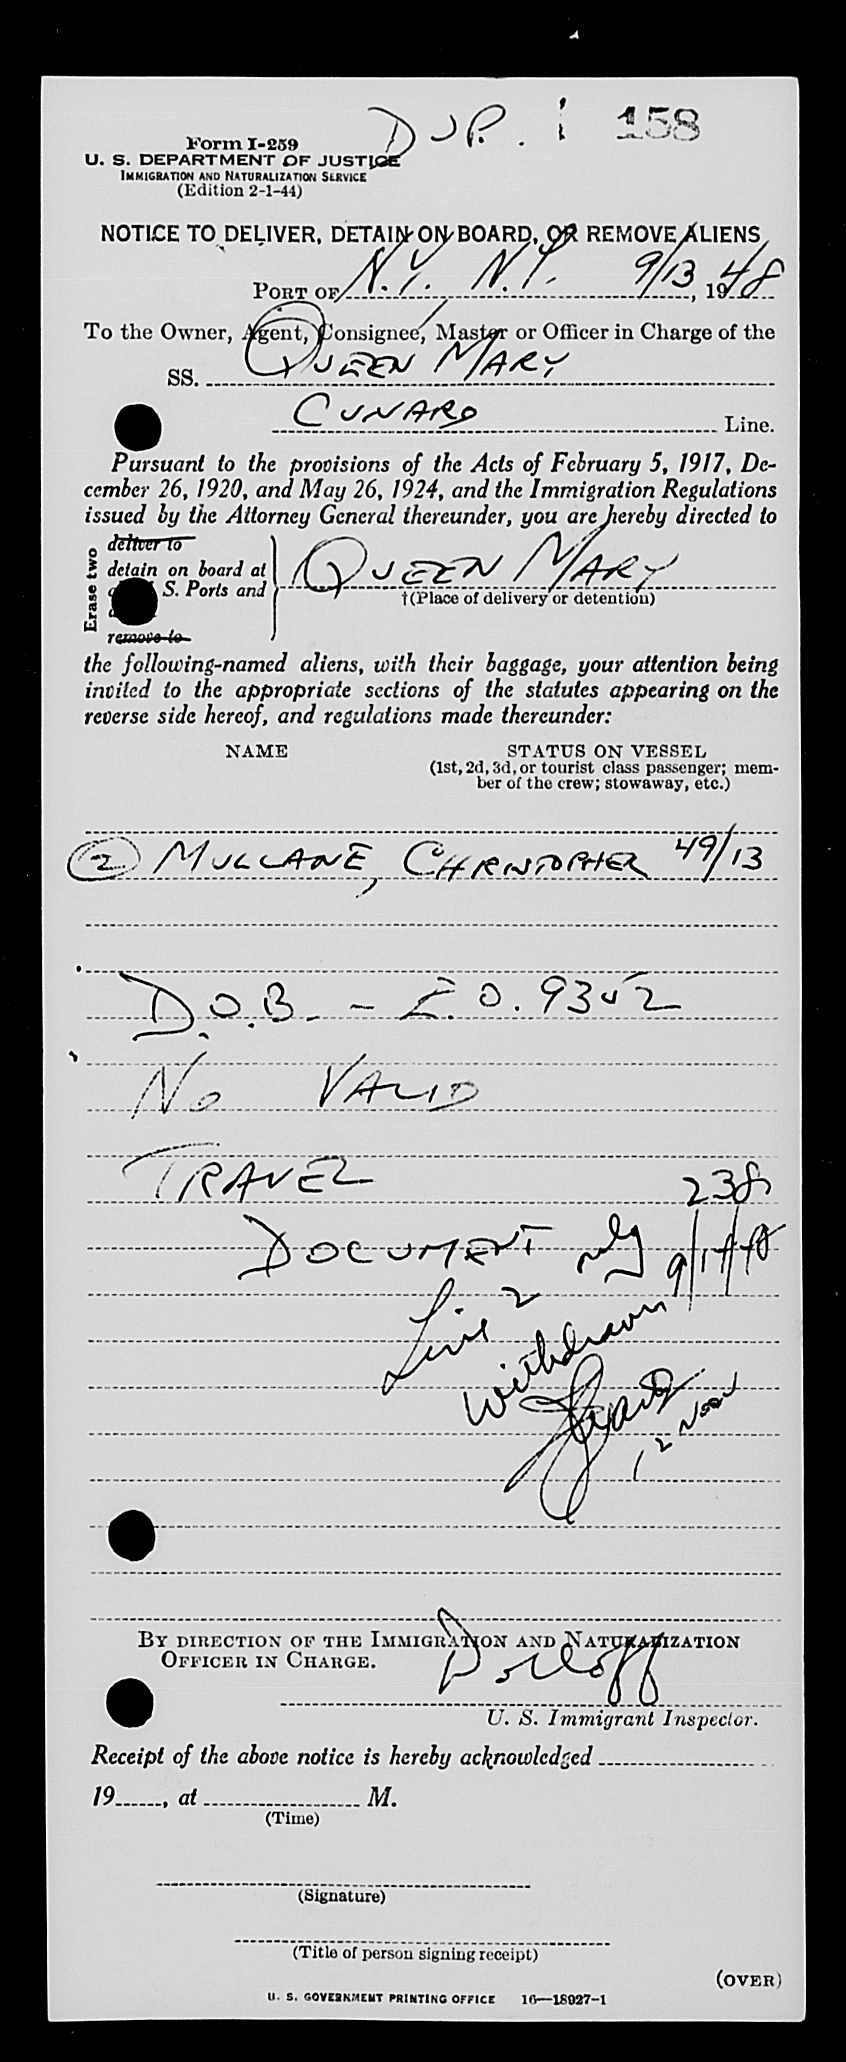 DUP. 158
Form I-259
U. S. DEPARTMENT OF JUSTICE
IMMIGRATION AND NATURALIZATION SERVICE
(Edition 2-1-44)
NOTICE TO DELIVER, DETAIN ON BOARD, OR REMOVE ALIENS
PORT OF N.Y. N.Y. 9/13, 1948
To the Owner, Agent, Consignee, Master or Officer in Charge of the
SS. QUEEN MARY
CUNARD Line.
Pursuant to the provisions of the Acts of February 5, 1917, De-
cember 26, 1920, and May 26, 1924, and the Immigration Regulations
issued by the Attorney General thereunder, you are hereby directed to
Erase two
deliver to
detain on board at
S. Ports and
remove to
QUEEN MARY
†(Place of delivery or detention)
the following-named aliens, with their baggage, your attention being
invited to the appropriate sections of the statutes appearing on the
reverse side hereof, and regulations made thereunder:
NAME STATUS ON VESSEL
(1st, 2d, 3d, or tourist class passenger; mem-
ber of the crew; stowaway, etc.)
2 MULLANE, CHRISTOPHER 49/13
D.O.B. - E.O. 9352
NO VALID
TRAVEL
238
DOCUMENT 9/14/48
Line 2
withdrawn
12 Noon
BY DIRECTION OF THE IMMIGRATION AND NATURALIZATION
OFFICER IN CHARGE.
U. S. Immigrant Inspector.
Receipt of the above notice is hereby acknowledged
19, at M.
(Time)
(Signature)
(Title of person signing receipt)
(OVER)
U. S. GOVERNMENT PRINTING OFFICE 16—18927-1